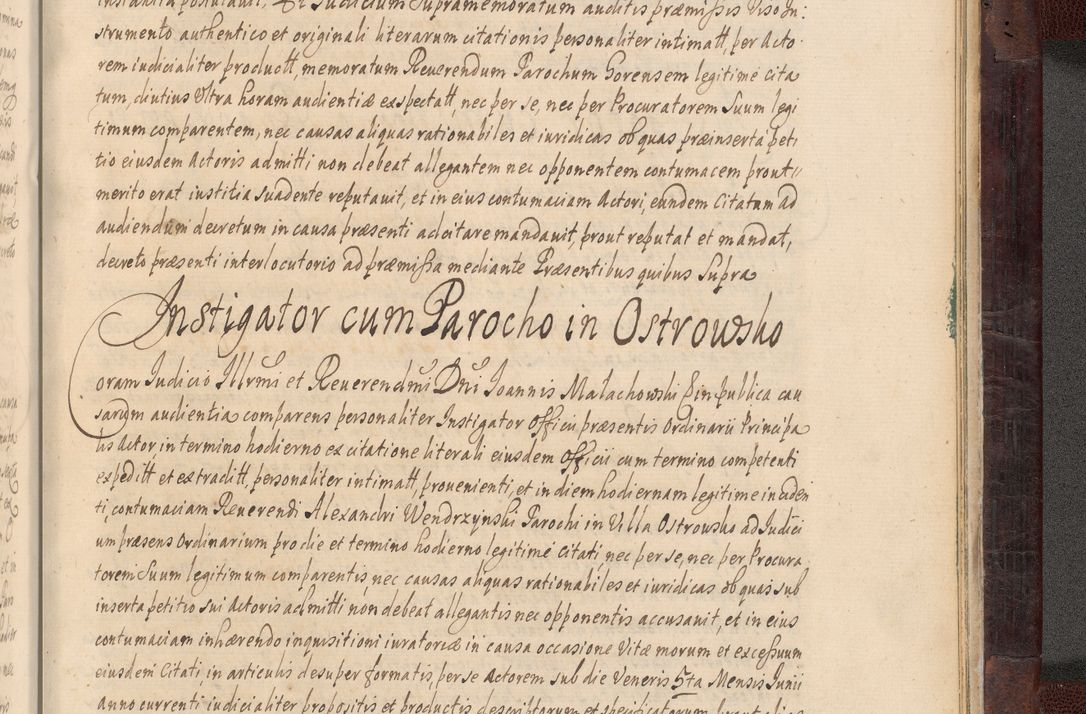 instantia postulavit, Et Judicium Supramemoratum auditis præmissis Viso In:
strumento authentico et originali literarum citationis personaliter intimatt, per Acto
rem iudicialiter productt, memoratum Reuerendum Parochum Gorensem legitime cita
tum, diutius Vltra horam audientiæ exspectatt, nec per se, nec per Procuratorem Suum legi
timum comparentem, nec causas aliquas rationabiles et iuridicas ob quas præinserta peti
tio eiusdem Actoris admitti non debeat allegantem nec opponentem contumacem prout
merito erat iustitia suadente reputauit, et in eius contumaciam Actori, eundem Citatum ad
audiendum decretum in causa præsenti adcitare mandauit, prout reputat et mandat,
decreto præsenti interlocutorio ad præmissa mediante Præsentibus quibus Supra
Instigator cum Parocho in Ostrowsko
Coram Judicio Illrmi et Reuerendmi Dni Joannis Małachowski E in publica cau
sarum audientia comparens personaliter Instigator Officii præsentis Ordinarii Principa
lis Actor, in termino hodierno ex citatione literali eiusdem Officii cum termino competenti
expeditt et extraditt, personaliter intimatt, prouenienti, et in diem hodiernam legitime inciden
ti, contumaciam Reuerendi Alexandri Wendrzynski Parochi in Villa Ostrowsko ad Judici
um præsens Ordinarium pro die et termino hodierno legitime citati, nec per se, nec per Procura
torem Suum legitimum comparentis, nec causas aliquas rationabiles et iuridicas ob quas sub
inserta petitio sui Actoris admitti non debeat allegantis nec opponentis accusauit, et in eius
contumaciam inhærendo inquisitioni iuratoriæ in causa occasione Vitæ morum et excessuum
eiusdem Citati, in articulis desuper formatis, per se Actorem sub die Veneris 5ta Mensis Junii
Anno currenti iudicialiter propositis et productis descriptorum et specificatorum